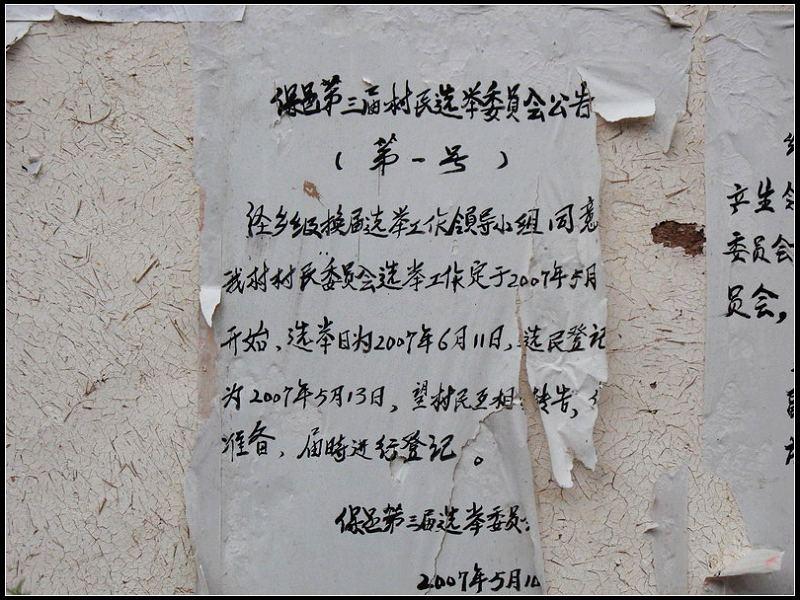 保邑第三届村民选举委员会公告
（第一号）
经乡级换届选举工作領导小组同意
我村村民委员会选举工作定于2007年5月
开始、选举日为2007年6月11日，选民登记
为2007年5月13日，望村民互相转告，
准备，届時进行登记。
保邑第三届选举委员
2007年5月1
产生
委员会
员会，